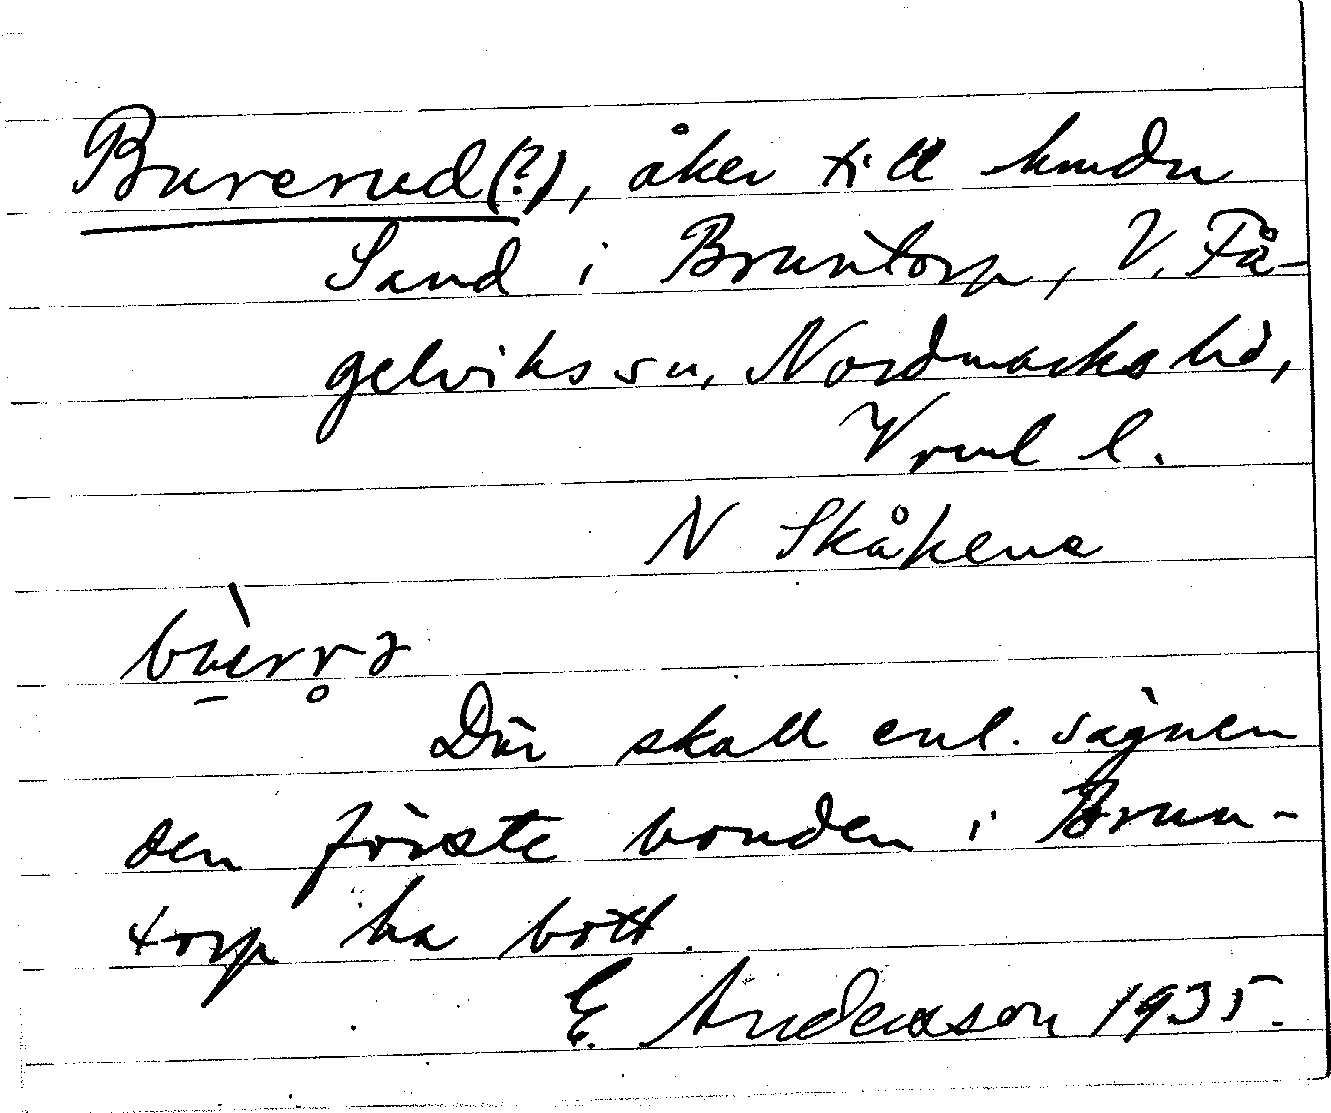 Burerud(?), åker till hmdn
Sand i Bruntorp, V. Få-
gelviks sn, Nordmarks hd,
Vrml l.
N Skåkene
Där skall enl. sägnen
den förste bonden i Brun-
torp ha bott.
E. Andersson 1935.